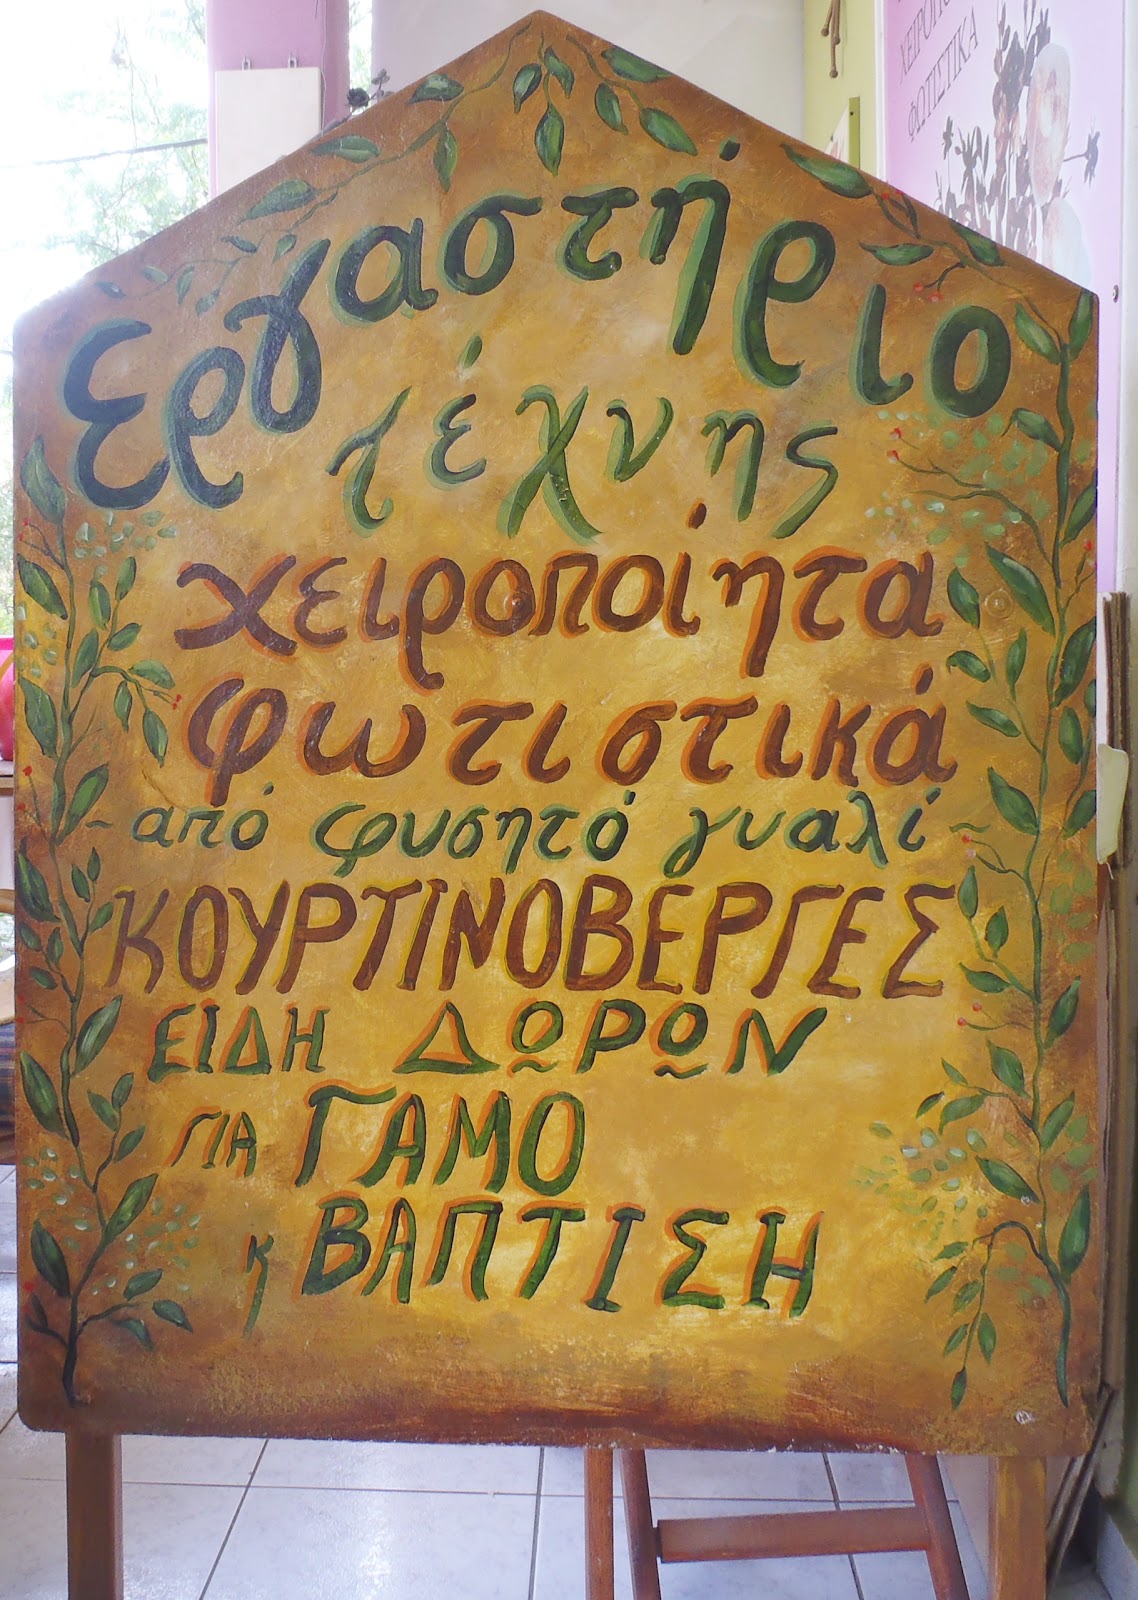 Εργαστήριο
τέχνης
χειροποίητα
φωτιστικά
- από φυσητό γυαλί -
ΚΟΥΡΤΙΝΟΒΕΡΓΕΣ
ΕΙΔΗ ΔΩΡΩΝ
ΓΙΑ ΓΑΜΟ
κ ΒΑΠΤΙΣΗ
ΦΩΤΙΣΤΙΚΑ